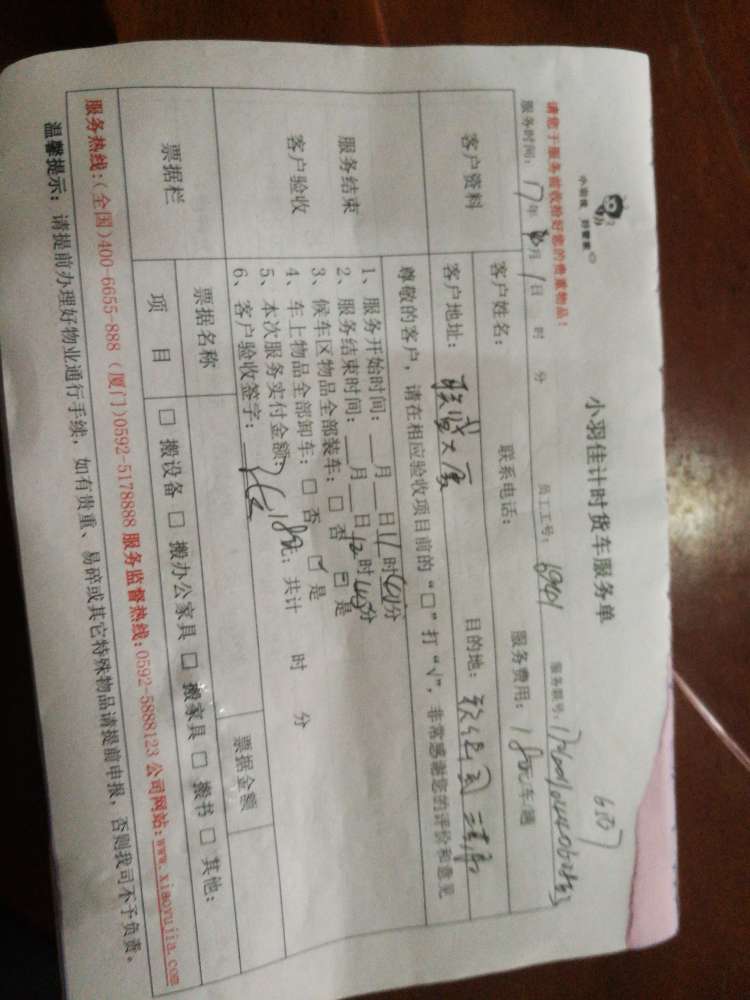 小羽佳计时货车服务单
请您于服务前收拾好您的贵重物品!
服务时间: 17年 月 1日 时 分 员工工号: 服务联号:
客户资料
客户姓名: 联系电话: 服务费用: 180元/车趟
客户地址: 联盛大厦 目的地: 软件园二期
服务结束
客户验收
尊敬的客户,请在相应验收项目前的“□”打“√”,非常感谢您的评价和意见
1、服务开始时间:__月__日11时40分
2、服务结束时间:__月__日12时40分
3、候车区物品全部装车:□ 否 ☑ 是
4、车上物品全部卸车:□ 否 ☑ 是
5、本次服务实付金额: 180元; 共计 时 分
6、客户验收签字:
票据栏
票据名称 票据金额
项 目 □ 搬设备 □ 搬办公家具 □ 搬家具 □ 搬书 □ 其他:
服务热线:(全国)400-6655-888 (厦门)0592-5178888 服务监督热线:0592-5888123 公司网站:www.xiaoyujia.com
温馨提示: 请提前办理好物业通行手续,如有贵重、易碎或其它特殊物品请提前申报,否则我司不予负责。